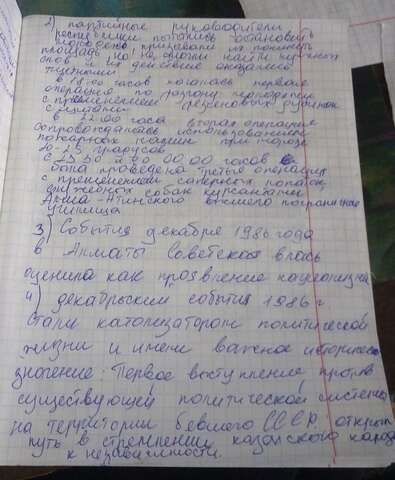 2) партийные руководители
республики пытались остановить
молодёжь призывали их покинуть
площадь но не смогли найти нужных
слов и их действие оказались
тщетными
в 18:00 часов началась первая
операция по разгону молодёжи
с применением резиновых дубинок
с щитами
в 22.00 часа вторая операция
сопровождалась использованием
пожарных машин при морозе
20-25 градусов
с 23 30 и до 00.00 часов
была проведена третья операция
с применением саперных лопаток
служебных собак курсантами
Алма-Атинского высшего пограничное
училища
3) События декабря 1986 года
в Алматы Советская власть
оценила как проявление национализма
4) декабрьский события 1986 г
стали катализатором политической
жизни и имели важное историческое
значение: Первое выступление против
существующей политической системы
на территории бывшего СССР, открыт
путь в стремлении казахского народа
к независимости.